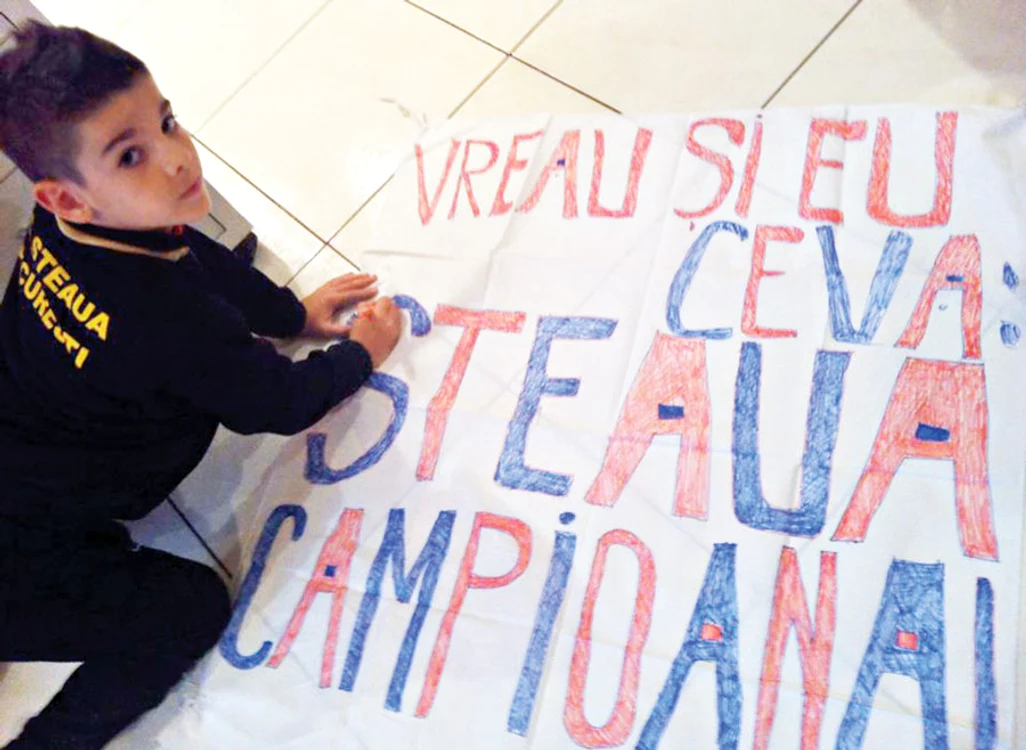 STEAUA
CUREȘTI
VREAU ȘI EU
CEVA:
STEAUA
CAMPIOANA!